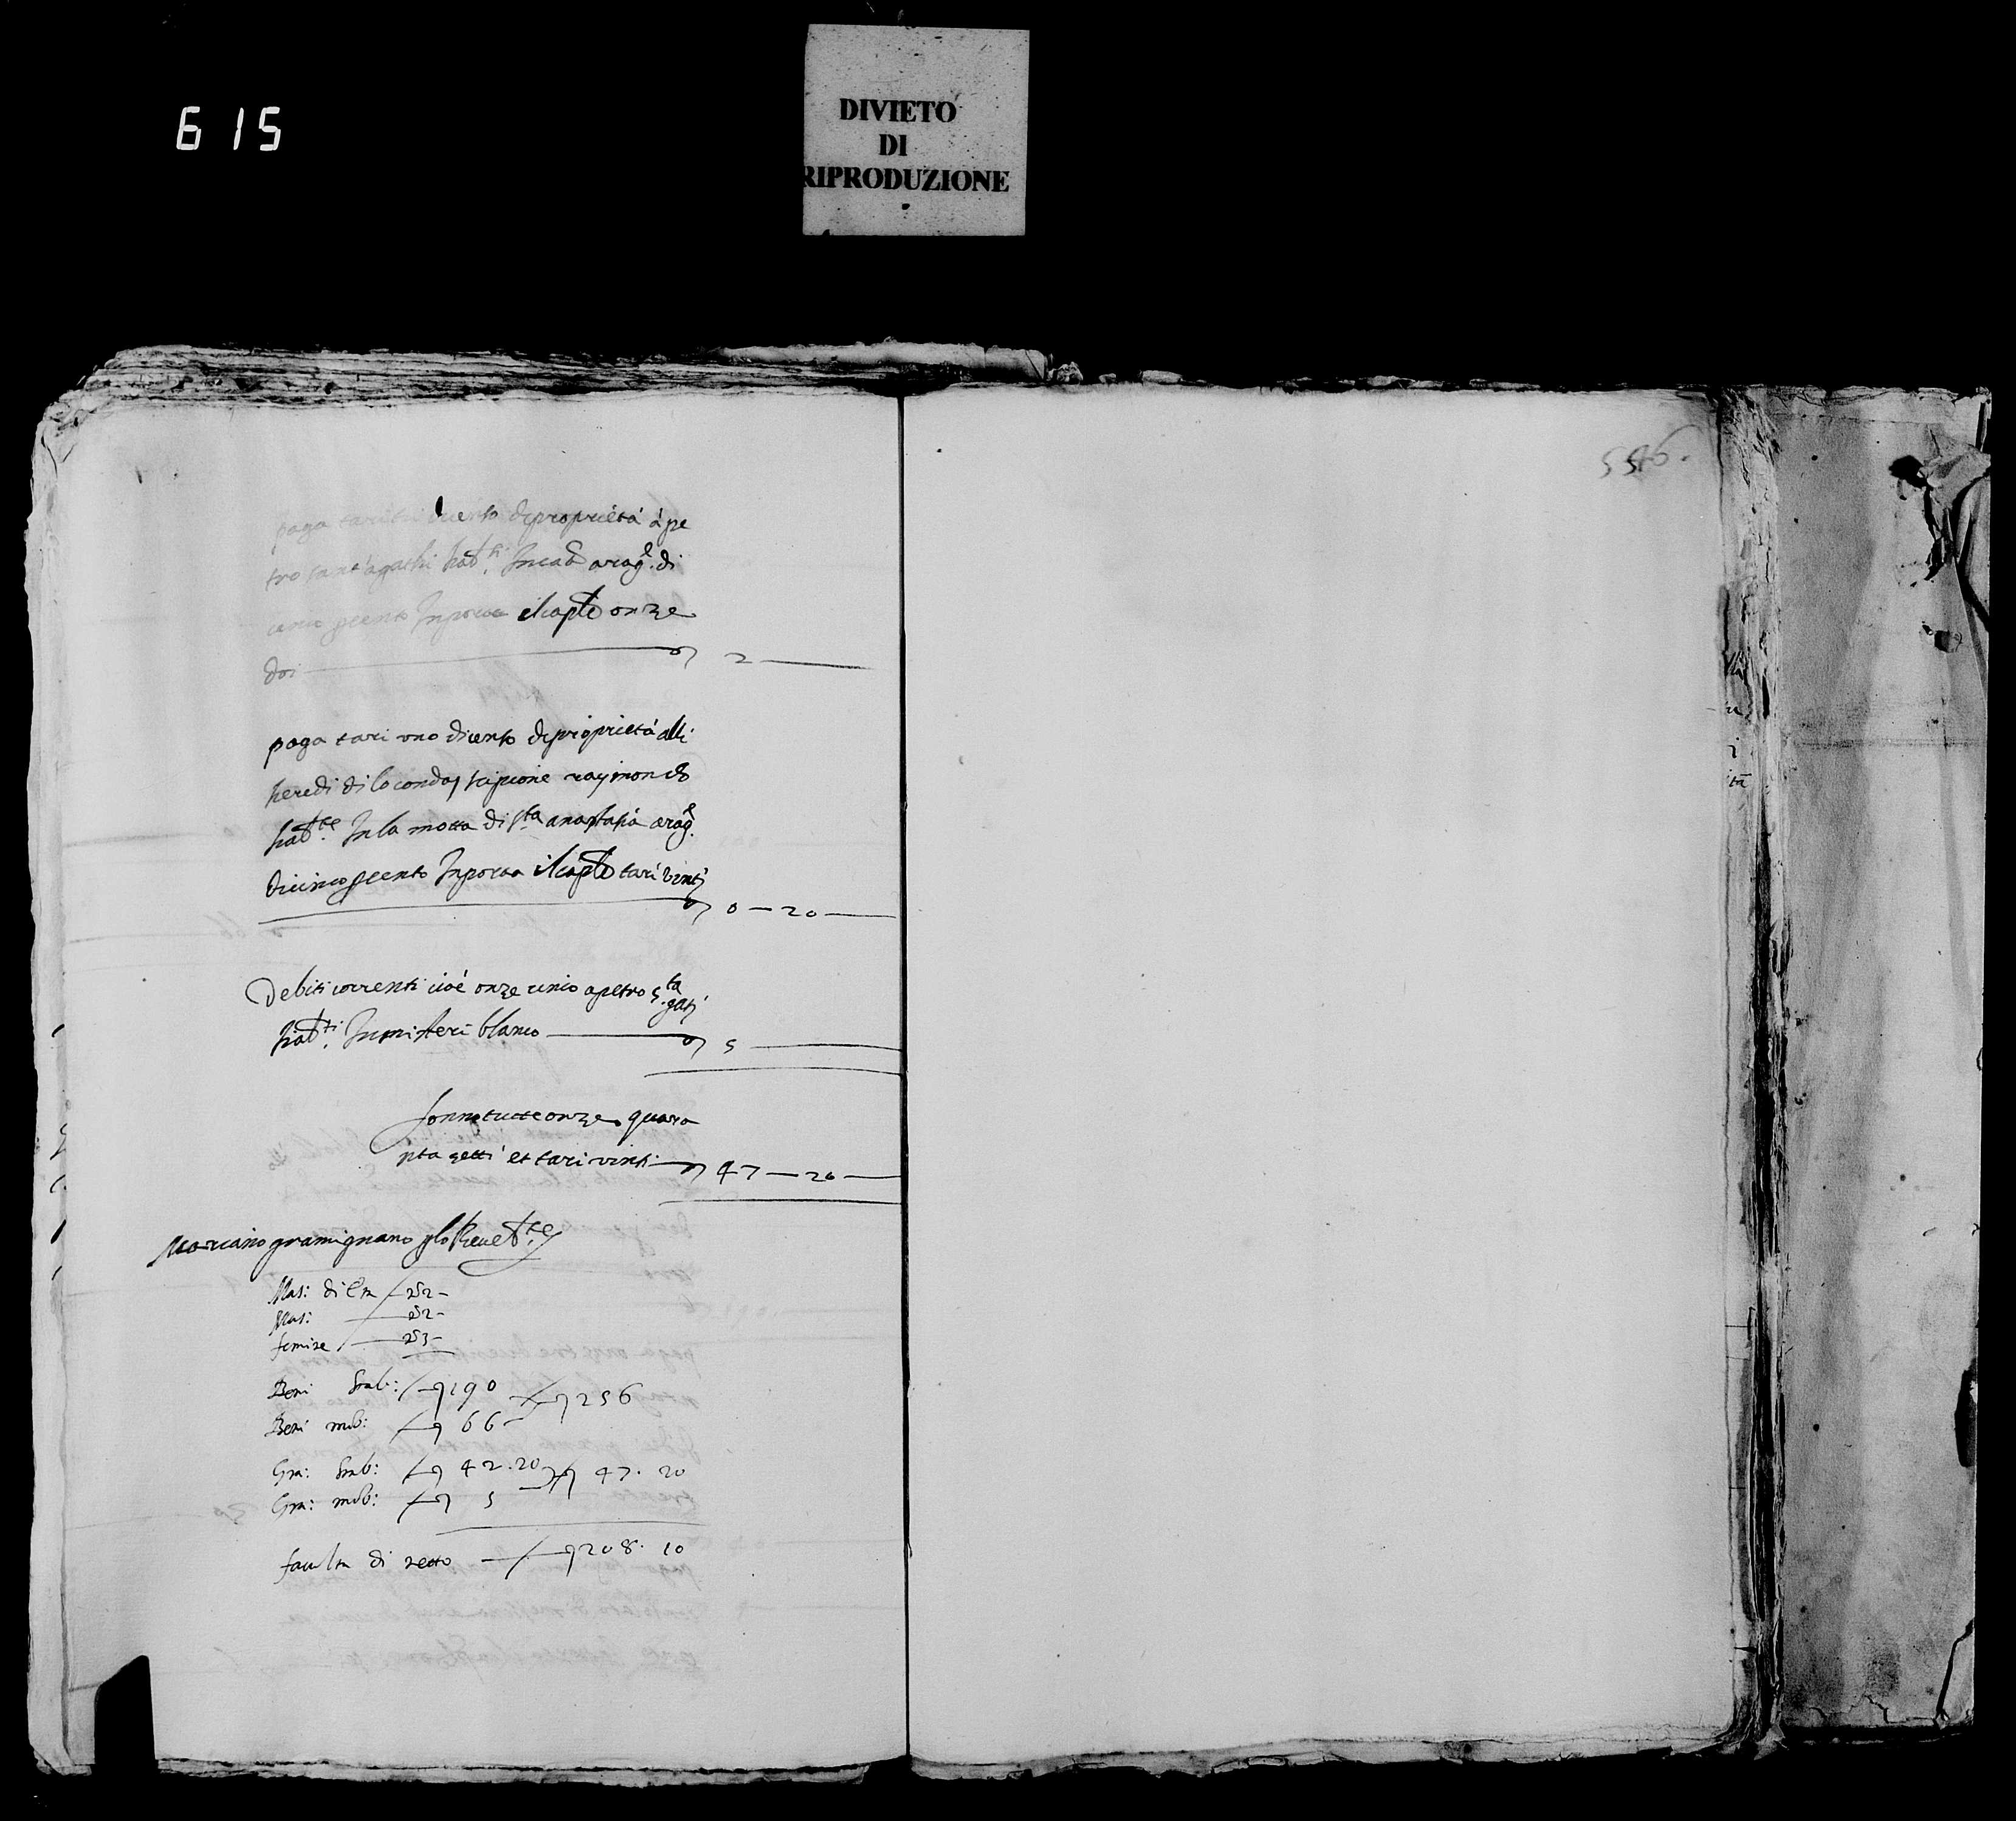 615
DIVIETO
DI
RIPRODUZIONE
556.
paga tari tri di cento di proprietà à pe
tro sant'agathi hab.ti In cat.a arag.e di
cinco p cento Inporta il cap.le onze
doi 2
paga tari uno di cento di proprietà alli
heredi di lo condam scipione raymondo
hab.te In la motta di s.ta anastasia arag.e
di cinco p cento Inporta il cap.le tari vinti
0 — 20
Debiti correnti cioè onze cinco a petro s.ta gati
hab.ti In misteri blanco 5
sonno tutte onze quara
nta setti et tari vinti 47 — 20
Marciano gramignano
Mas: di Età 252
Mas: 252
femine 253
Beni Stab: 190 256
Beni mob: 66
Gra: Stab: 42.20 47. 20
Gra: mob: 5
faculta di netto 208. 10